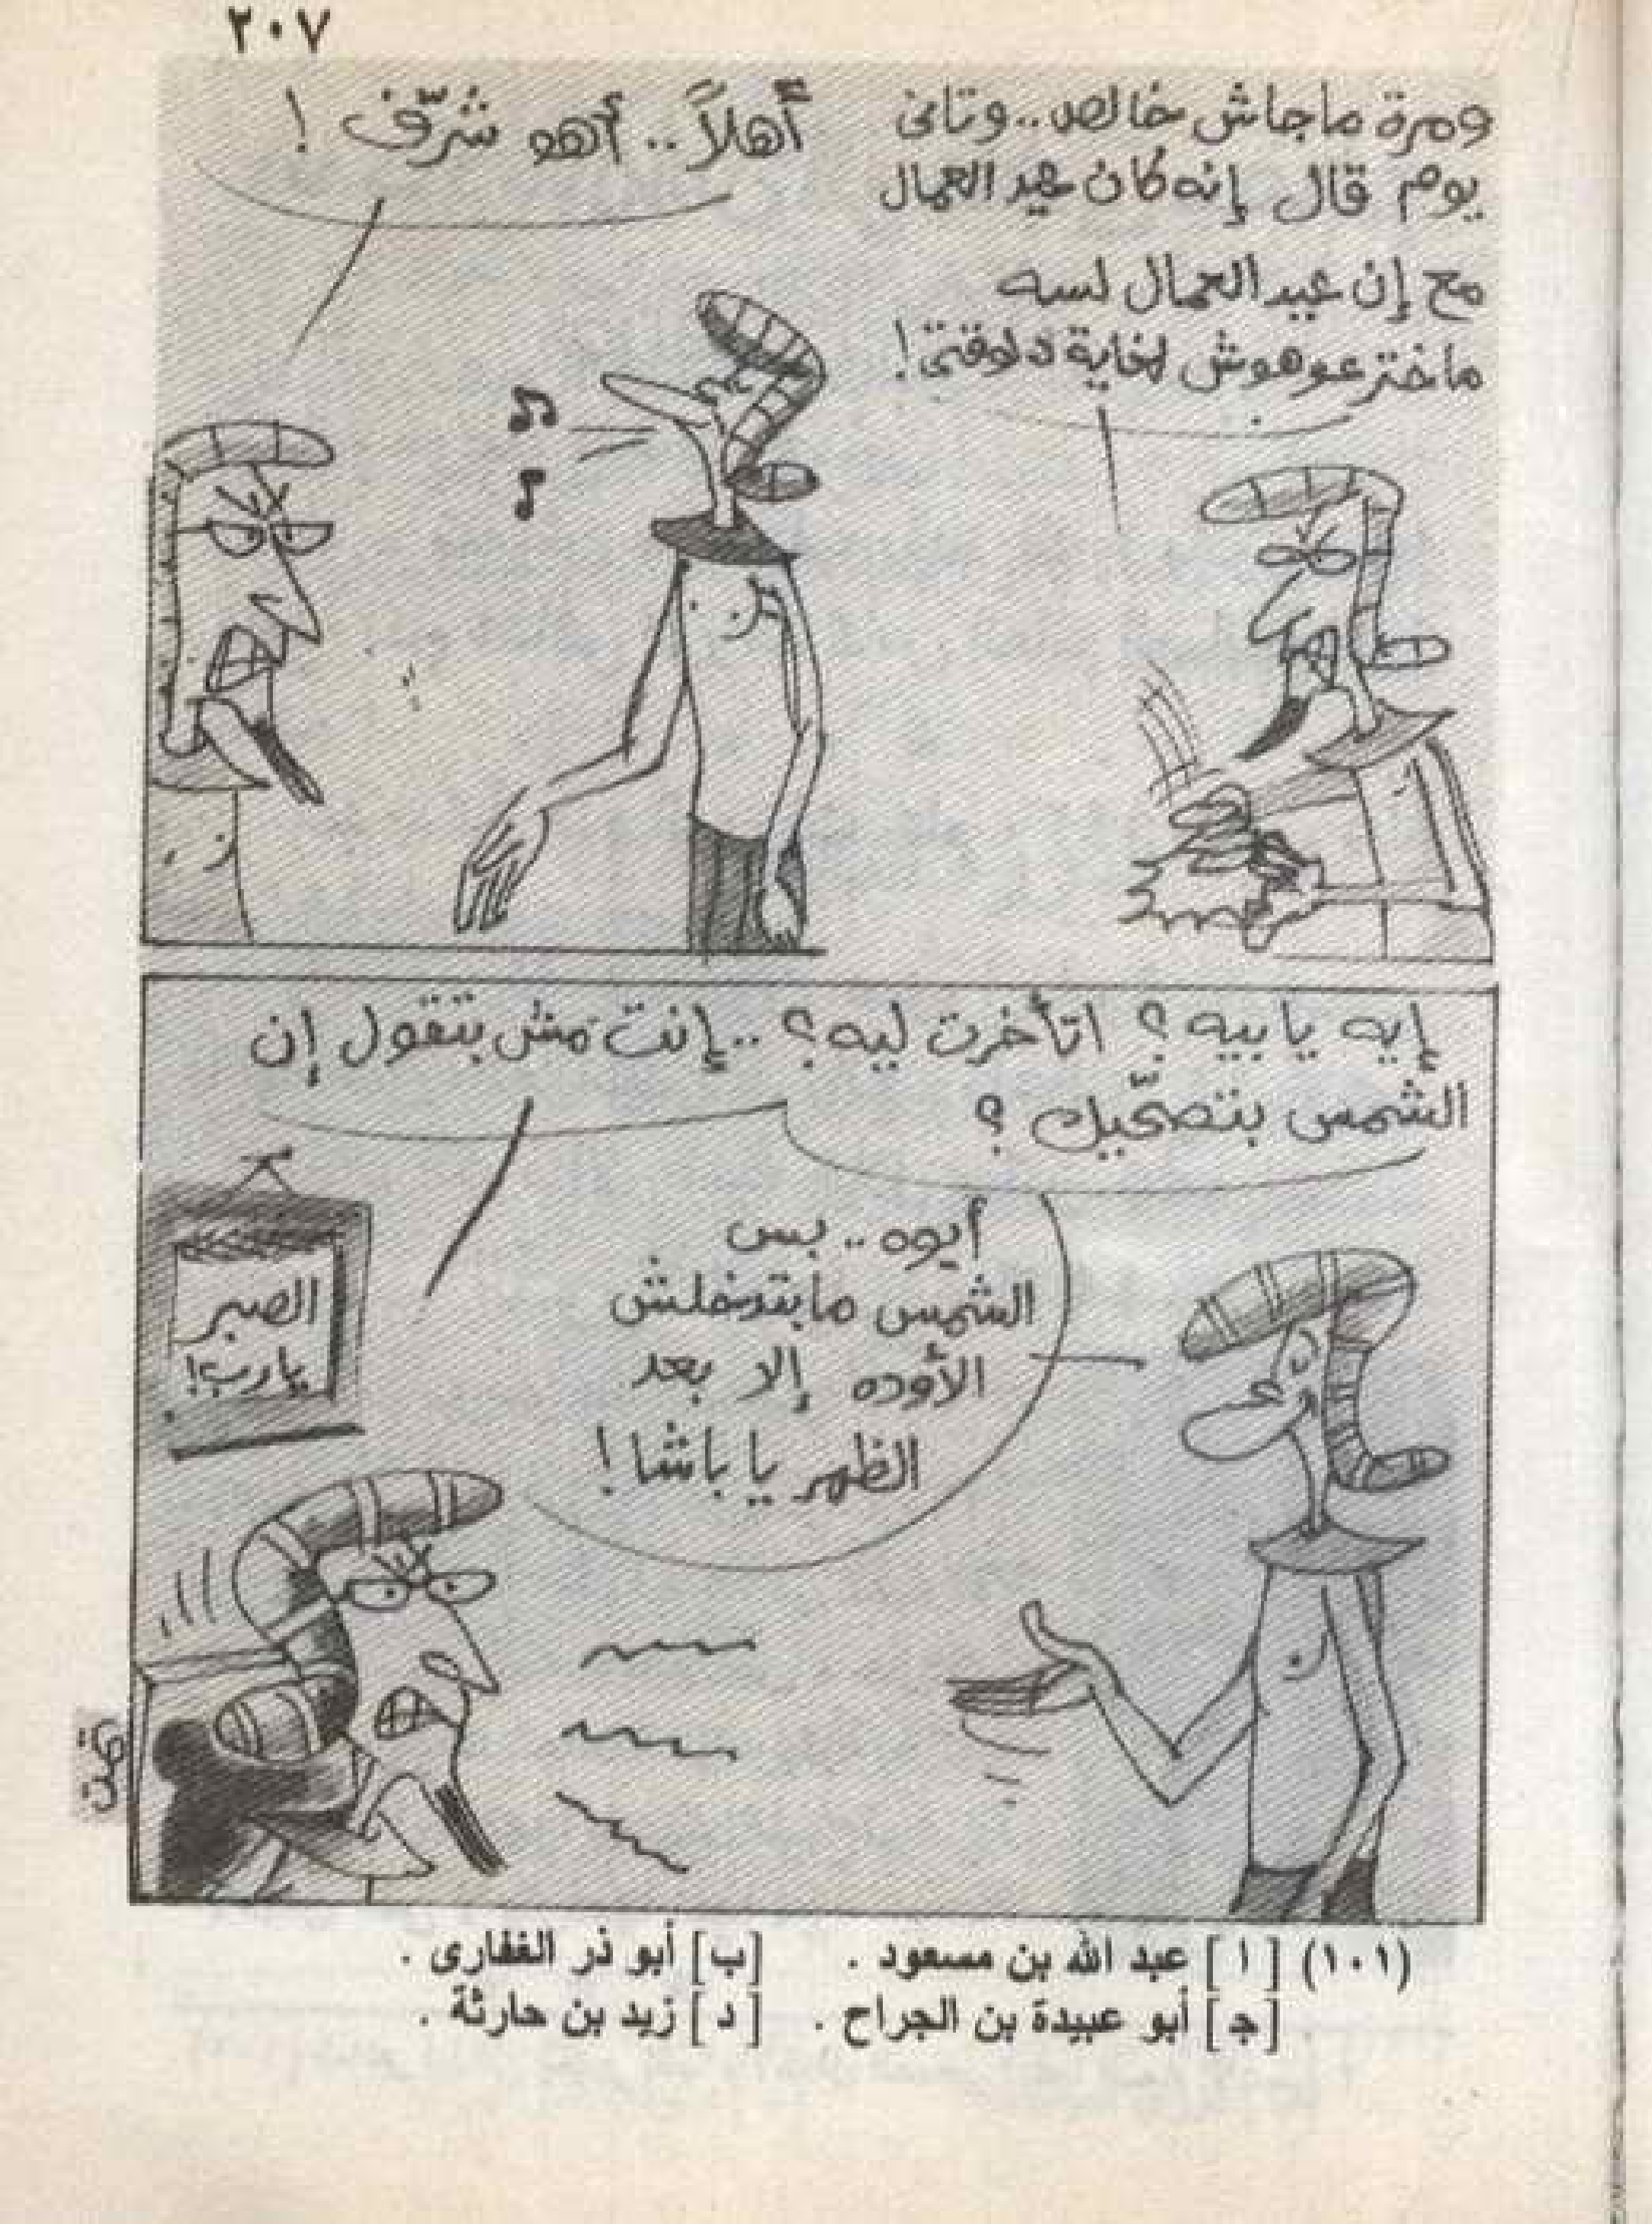 ٢٠٧
ومرة ماجاش خالص..وتانى
يوم قال إنه كان عيد العمال
مع إن عيد العمال لسه
ماخترعوهوش لغاية دلوقتى!
أهلاً.. أهو شرّف !
إيه يا بيه ؟ اتأخرت ليه ؟ ..إنت مش بتقول إن
الشمس بتصحّيك ؟
أيوه.. بس
الشمس مابتدخلش
الأوده إلا بعد
الظهر يا باشا !
الصبر
يارب!
تمت
(١٠١) [ ا ] عبد الله بن مسعود . [ب] أبو ذر الغفارى .
[جـ] أبو عبيدة بن الجراح . [ د ] زيد بن حارثة .